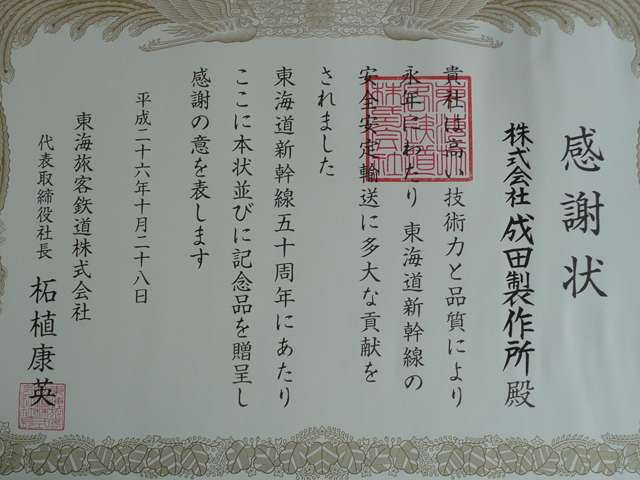 感謝状
株式会社 成田製作所 殿
貴社は高い技術力と品質により
永年にわたり 東海道新幹線の
安全安定輸送に多大な貢献を
されました
東海道新幹線五十周年にあたり
ここに本状並びに記念品を贈呈し
感謝の意を表します
平成二十六年十月二十八日
東海旅客鉄道株式会社
代表取締役社長 柘植康英